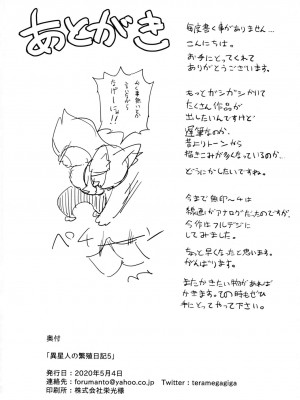 あとがき
毎度書く事がありません…
こんにちは。
お手にとってくれて
ありがとうございます。
もっとガンガンかいて
たくさん作品が
出したいんですけど
遅筆なのか、
昔よりトーンから
描きこみが多くなっているのか、
どうにかしたいですね。
今まで無印〜4は
線画がアナログだったのですが、
今作はフルデジに
してみました。
ちょっと早くなったと思います。
がんばります。
またかきたい物があれば
かきます。その時もぜひ
手にとってやって下さい。
なげーに
ペチ
奥付
「異星人の繁殖日記5」
発行日：2020年5月4日
連絡先：forumanto@yahoo.co.jp Twitter：teramegagiga
印刷所：株式会社栄光様